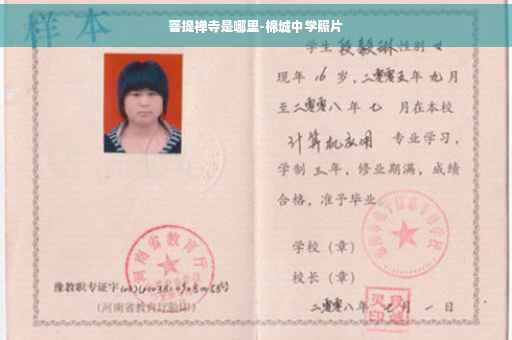 菩提禅寺是哪里-棉城中学照片
样本
学生段毅琳性别女
现年16岁，二零零五年九月
至二零零八年七月在本校
计算机应用 专业学习，
学制三年，修业期满，成绩
合格，准予毕业
学校（章）
校长（章）
二零零八年七月一日
河南省教育厅
豫教职专证字
（河南省教育厅验印）